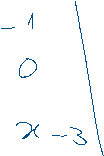 -1
0
x-3